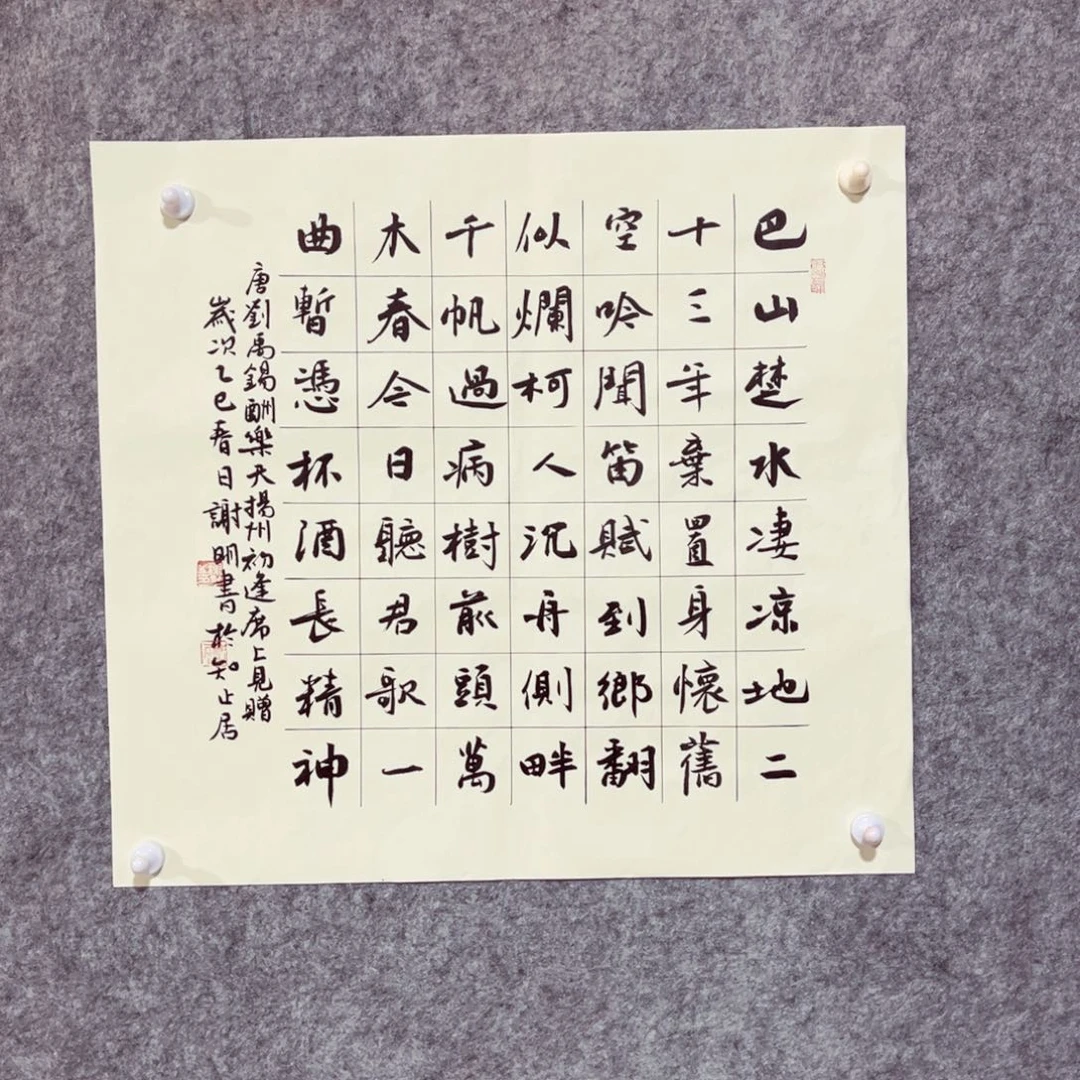 巴山楚水凄涼地二
十三年棄置身懷舊
空吟聞笛賦到鄉翻
似爛柯人沉舟側畔
千帆過病樹前頭萬
木春今日聽君歌一
曲暫憑杯酒長精神
唐劉禹錫酬樂天揚州初逢席上見贈
歲次乙巳春日謝明書於知止居